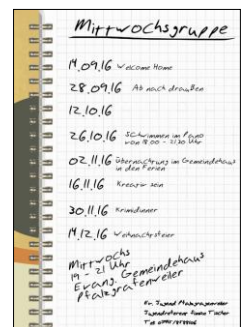 Mittwochsgruppe
14.09.16 Welcome Home
28.09.16 Ab nach draußen
12.10.16
26.10.16 Schwimmen im Pano
von 18.00 - 21.30 Uhr
02.11.16 Übernachtung im Gemeindehaus
in den Ferien
16.11.16 Kreativ sein
30.11.16 Krimidinner
14.12.16 Weihnachtsfeier
Mittwochs
19 - 21 Uhr
Evang. Gemeindehaus
Pfalzgrafenweiler
Ev. Jugend Pfalzgrafenweiler
Jugendreferent